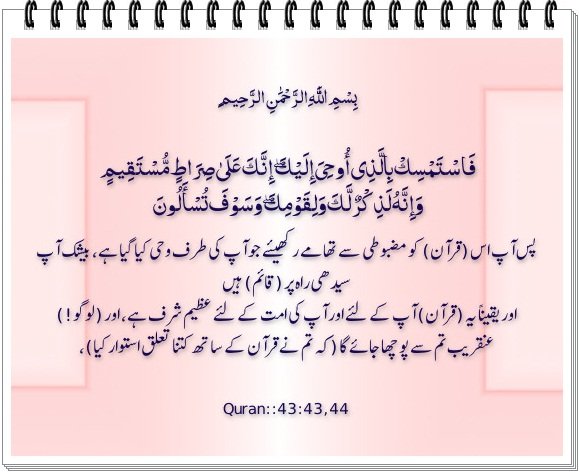 بِسْمِ اللَّهِ الرَّحْمَٰنِ الرَّحِيمِ
فَاسْتَمْسِكْ بِالَّذِي أُوحِيَ إِلَيْكَ ۖ إِنَّكَ عَلَىٰ صِرَاطٍ مُّسْتَقِيمٍ
وَإِنَّهُ لَذِكْرٌ لَّكَ وَلِقَوْمِكَ ۖ وَسَوْفَ تُسْأَلُونَ
پس آپ اس (قرآن) کو مضبوطی سے تھامے رکھیئے جو آپ کی طرف وحی کیا گیا ہے، بیشک آپ
سیدھی راہ پر (قائم) ہیں
اور یقیناً یہ (قرآن) آپ کے لئے اور آپ کی امت کے لئے عظیم شرف ہے، اور (لوگو!)
عنقریب تم سے پوچھا جائے گا (کہ تم نے قرآن کے ساتھ کتنا تعلق استوار کیا)،
Quran::43:43,44